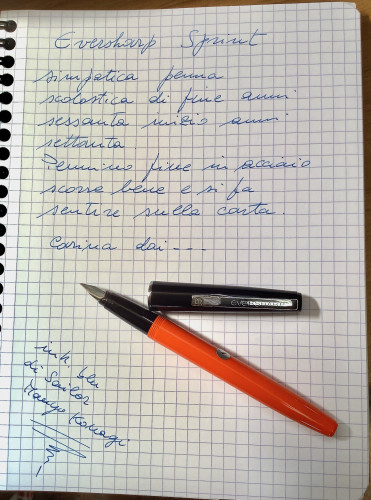 Eversharp Sprint
simpatica penna
scolastica di fine anni
sessanta inizio anni
settanta
Pennino fine in acciaio
scorre bene e si fa
sentire sulla carta.
Carina dai ---
EVERSHARP
ink. blu
di Sailor
Manyo Konagi